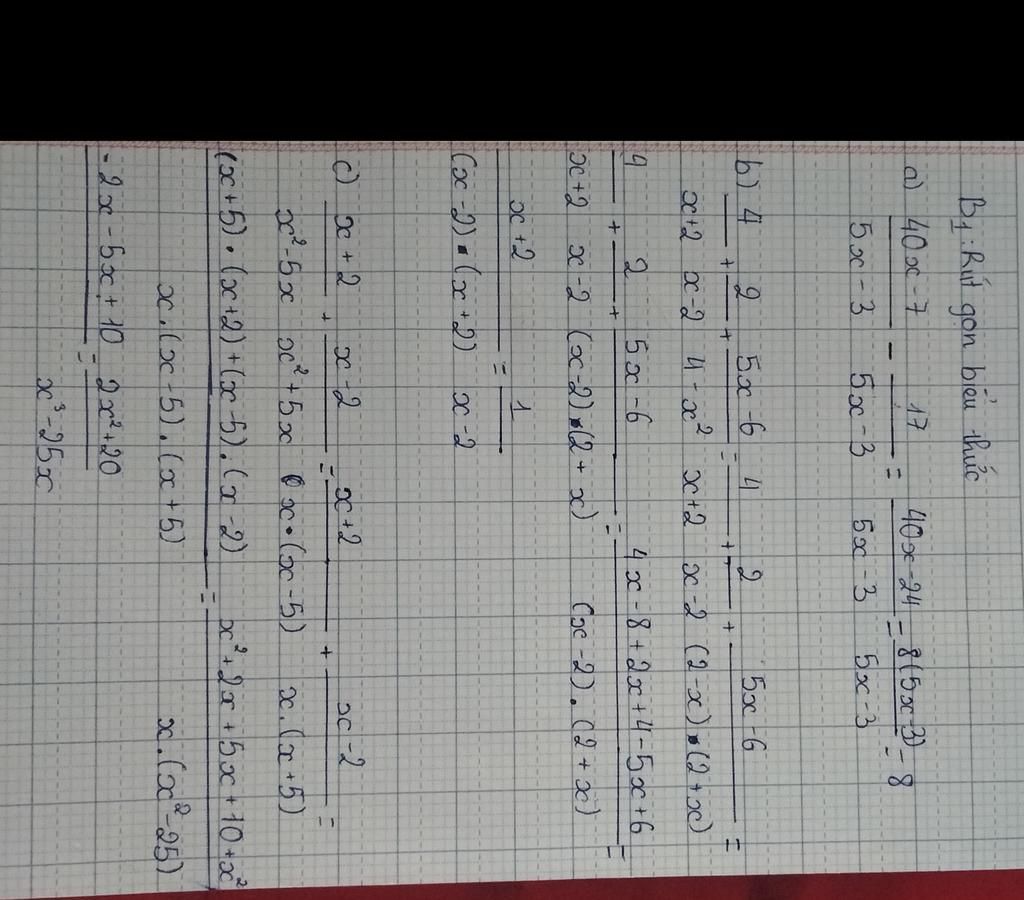 B1: Rút gọn biểu thức
a) 40x-7 / 5x-3 - 17 / 5x-3 = 40x-24 / 5x-3 = 8(5x-3) / 5x-3 = 8
b) 4 / x+2 + 2 / x-2 + 5x-6 / 4-x² = 4 / x+2 + 2 / x-2 + 5x-6 / (2-x).(2+x) =
4 / x+2 + 2 / x-2 + 5x-6 / (x-2).(2+x) = 4x-8+2x+4-5x+6 / (x-2).(2+x) =
x+2 / (x-2).(x+2) = 1 / x-2
c) x+2 / x²-5x + x-2 / x²+5x = x+2 / x.(x-5) + x-2 / x.(x+5) =
(x+5).(x+2)+(x-5).(x-2) / x.(x-5).(x+5) = x²+2x+5x+10+x² / x.(x²-25)
-2x-5x+10 = 2x²+20 / x³-25x